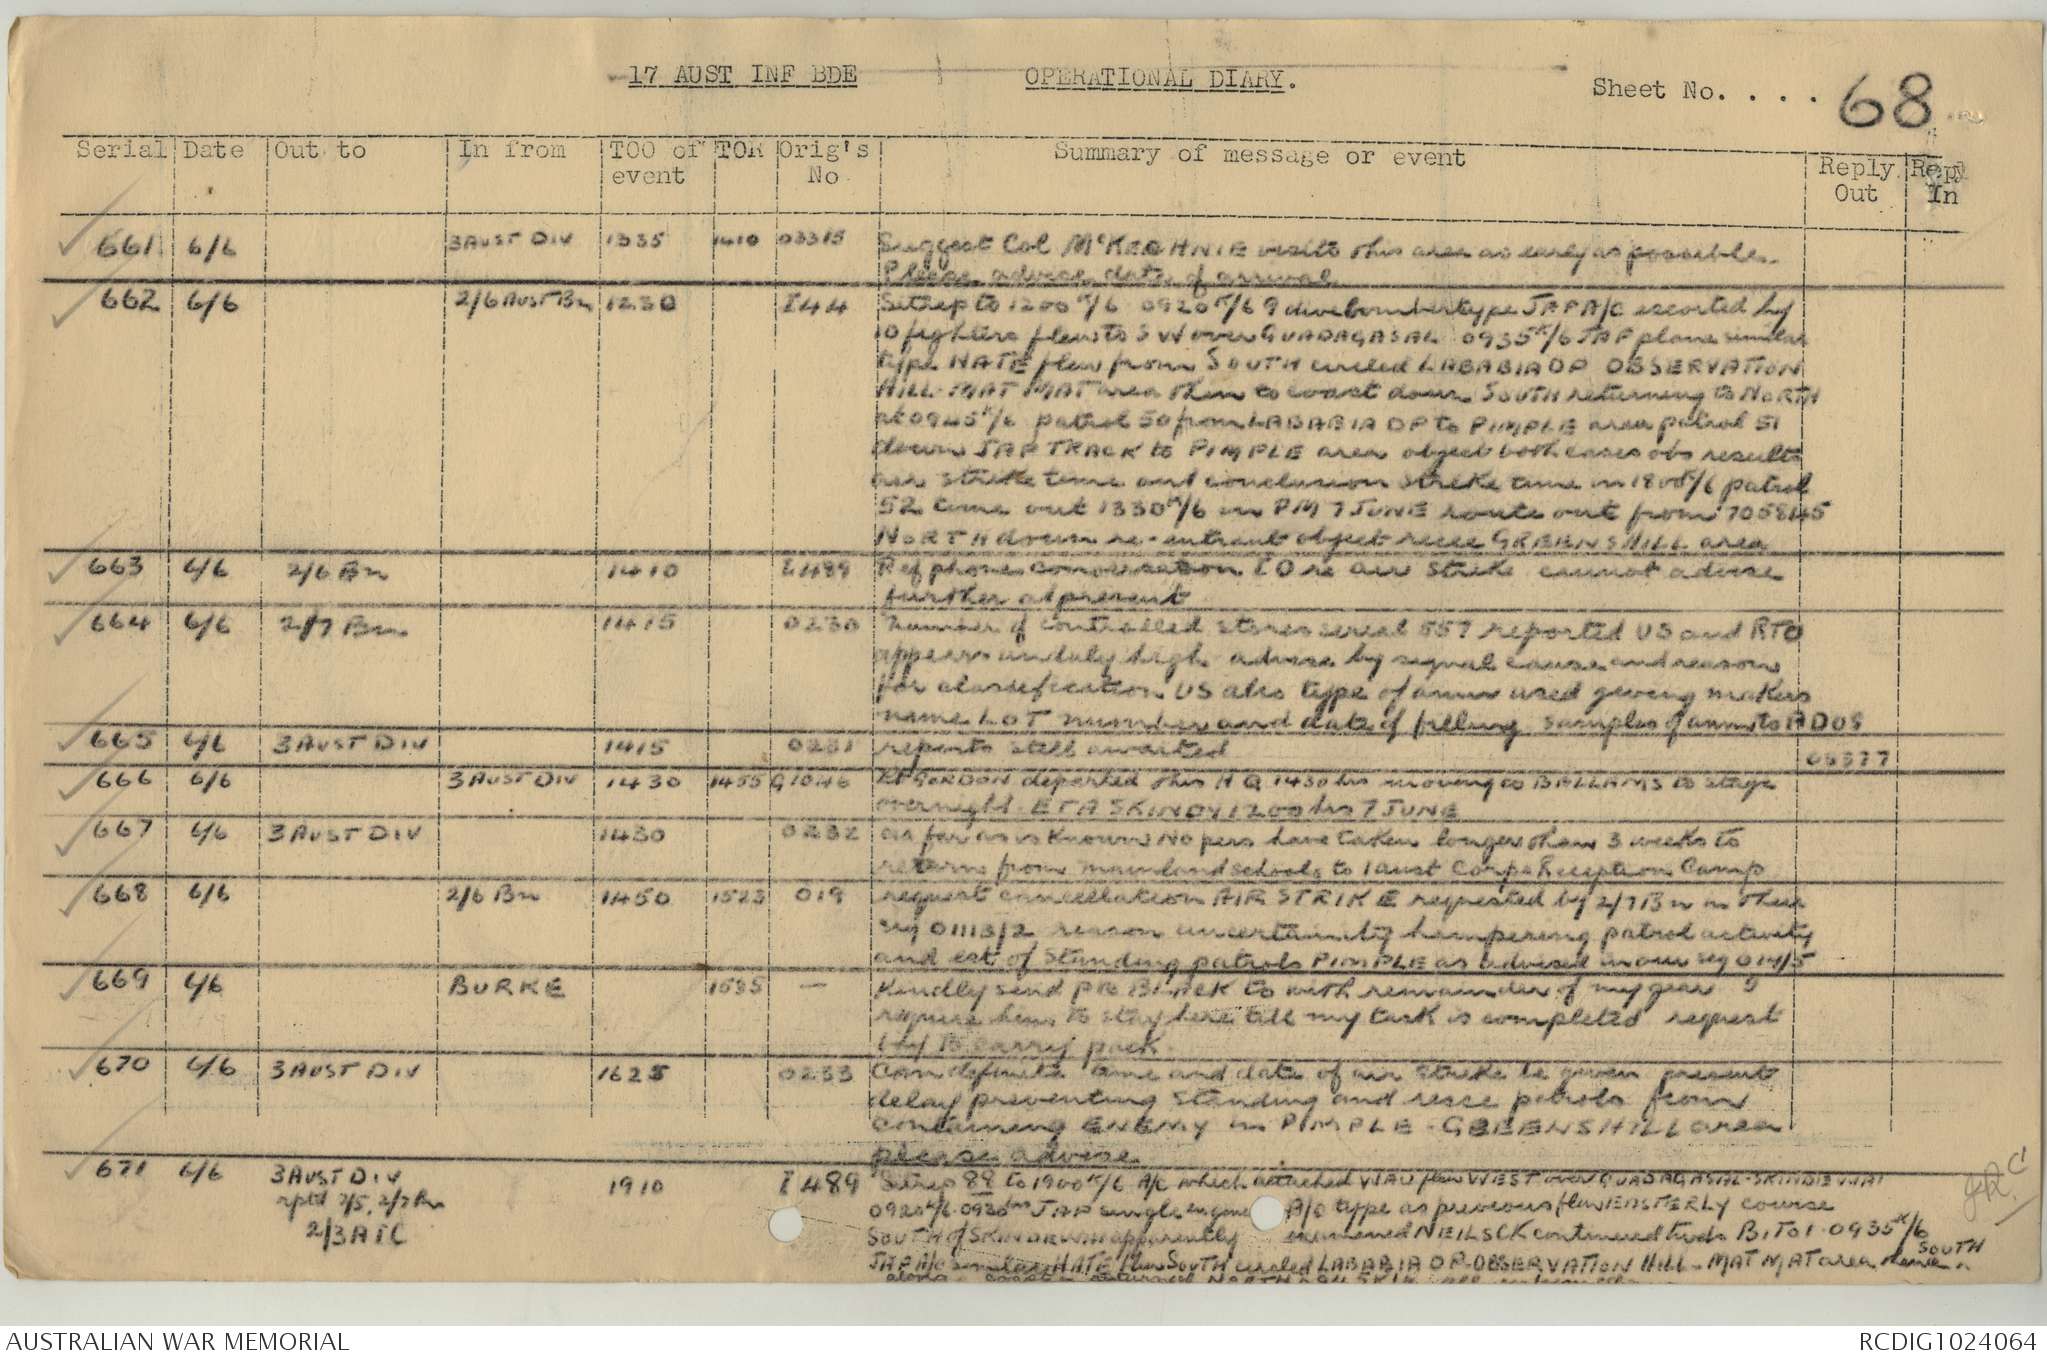 17 AUST INF BDE OPERATIONAL DIARY. Sheet No. . . . . 68
Serial Date Out to In from TOO of event TOR Orig's No Summary of message or event Reply Out Reply In
661 6/6 3 AUST DIV 1335 1410 03315 Suggest Col McKECHNIE visits this area as early as possible.
Please advise date of arrival
662 6/6 2/6 AUST Bn 1230 I44 Sitrep to 1200K/6 0920K/6 9 divebomber type JAP A/C escorted by
10 fighters flew to SW over GUADAGASAL 0935K/6 JAP plane similar
type NATE flew from SOUTH circled LABABIA OP OBSERVATION
HILL-MAT MAT area then to coast down SOUTH returning to NORTH
at 0945K/6 patrol 50 from LABABIA OP to PIMPLE area patrol 51
down JAP TRACK to PIMPLE area object both cases obs results
air strike time out conclusion strike time in 1800K/6 patrol
52 time out 1330K/6 in PM 7 JUNE route out from 7058145
NORTH down re-entrant object recce GREENS HILL area
663 6/6 2/6 Bn 1410 I489 Ref phone conversation IO re air strike cannot advise
further at present
664 6/6 2/7 Bn 1415 0230 Number of controlled stores serial 557 reported US and RTO
appears unduly high advise by signal cause and reason
for classification US also type of ammn used giving makers
name LOT number and date of filling samples of ammn to ADOS
665 6/6 3 AUST DIV 1415 0231 reports still awaited 03377
666 6/6 3 AUST DIV 1430 1455 G1046 Lt GORDON departed this HQ 1430 hrs moving to BALLAMS to stage
overnight. ETA SKINDY 1200 hrs 7 JUNE
667 6/6 3 AUST DIV 1430 0232 as far as is known No pers have taken longer than 3 weeks to
return from mainland schools to 1 Aust Corps Reception Camp
668 6/6 2/6 Bn 1450 1523 019 request cancellation AIR STRIKE requested by 2/7 Bn in their
sig 01113/2 reason uncertainty hampering patrol activity
and est of standing patrols PIMPLE as advised in our sig 014/5
669 6/6 BURKE 1535 — Kindly send pte BLACK to with remainder of my gear I
require him to stay here till my task is completed request
carry pack.
670 6/6 3 AUST DIV 1625 0233 Can definite time and date of air strike be given present
delay preventing standing and recce patrols from
containing ENEMY in PIMPLE-GREENS HILL area
please advise
671 6/6 3 AUST DIV 1910 I489 Sitrep 88 to 1900K/6 A/C which attacked WAU flew WEST over GUADAGASAL-SKINDEWAI
rptd 2/5, 2/7 Bn 0920K/6. 0930 hrs JAP single engine A/C type as previous flew EASTERLY course
2/3 AIC SOUTH of SKINDEWAI apparently continued twds 0935K/6
JAP A/C similar NATE flew SOUTH circled LABABIA OP-OBSERVATION HILL-MAT MAT area thence SOUTH
along coast returned NORTH
AUSTRALIAN WAR MEMORIAL RCDIG1024064